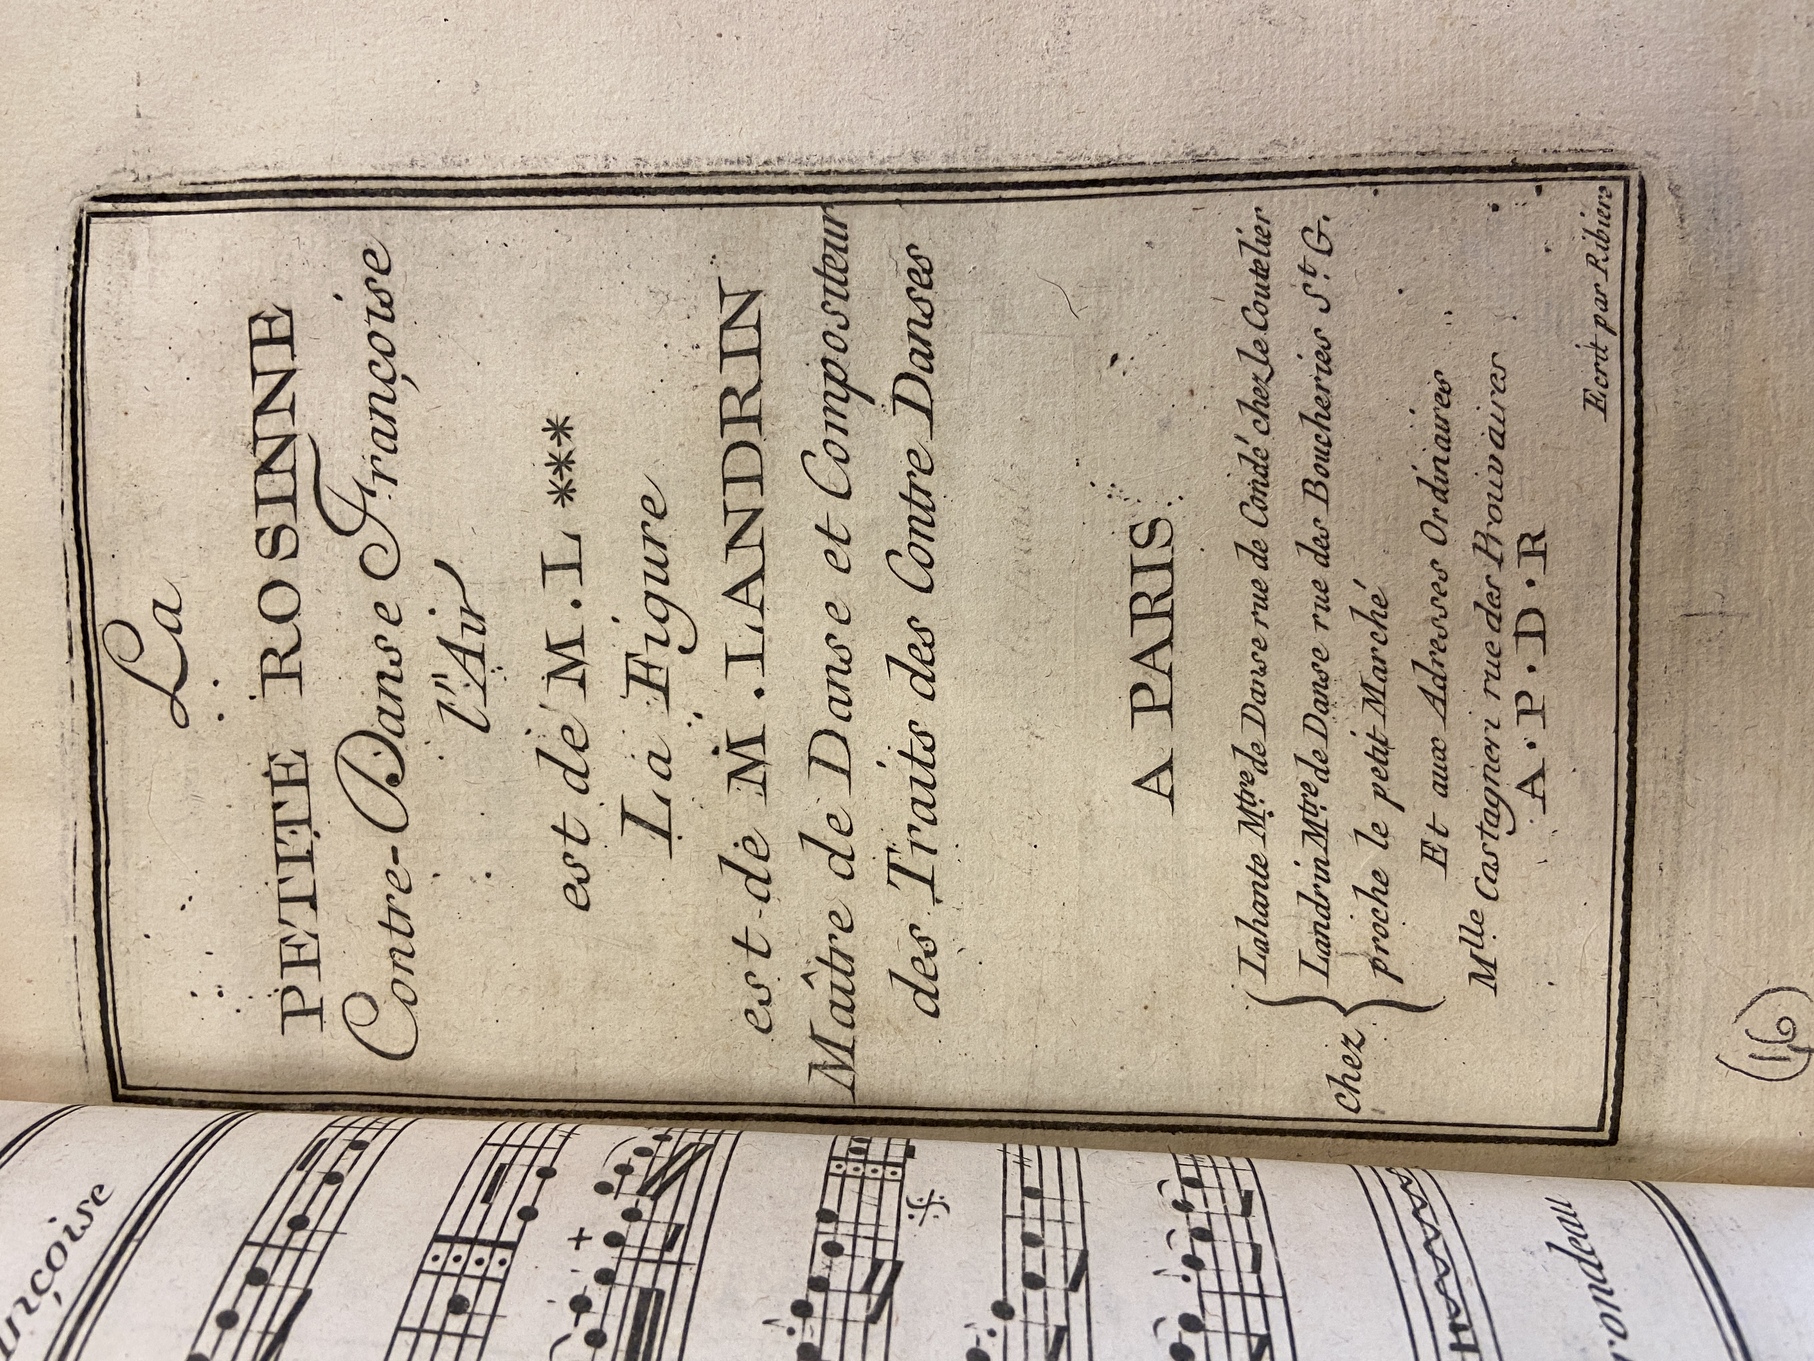 La
PETITE ROSINNE
Contre-Danse Françoise
l'Air
est de M. L ***
La Figure
est de M. LANDRIN
Maître de Danse et Compositeur
des Traits des Contre Danses
A PARIS
chez
Lahante Mtre de Danse rue de Condé chez le Coutelier
Landrin Mtre de Danse rue des Boucheries St. G.
proche le petit Marché
Et aux Adresses Ordinaires
Mlle Castagneri rue des Prouvaires
A.P.D.R
Ecrit par Ribiere
(46)
ançoise
rondeau